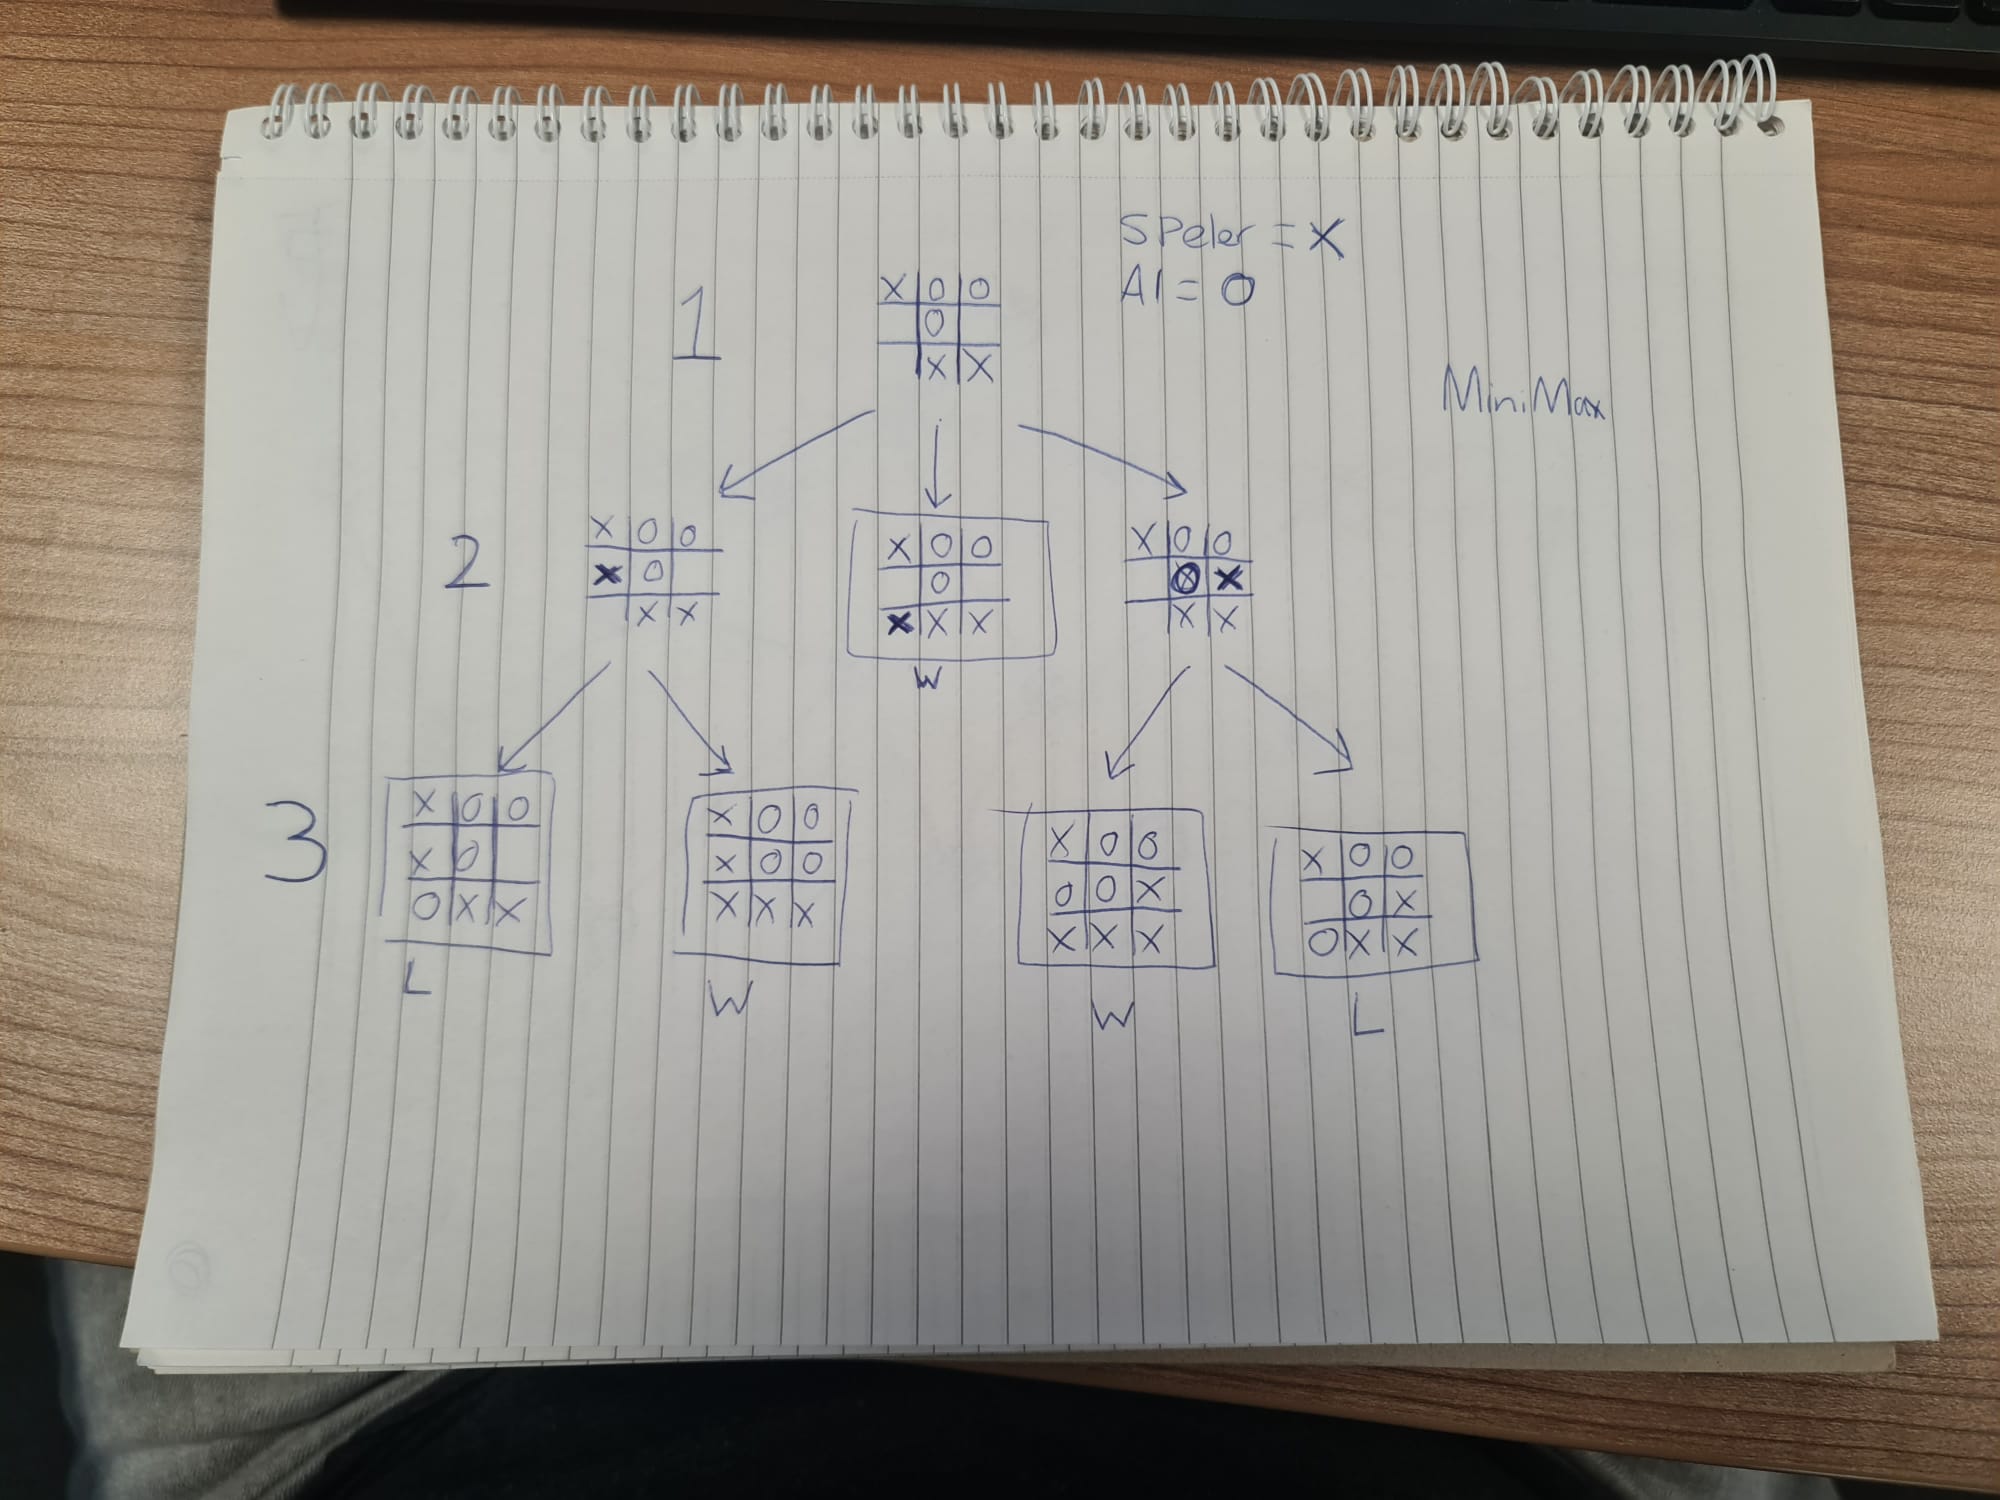 SPeler = X
AI = O
1
X O O
O
X X
MiniMax
2
X O O
X O
X X
X O O
O
X X X
W
X O O
O X
X X
3
X O O
X O
O X X
L
X O O
X O O
X X X
W
X O O
O O X
X X X
W
X O O
O X
O X X
L